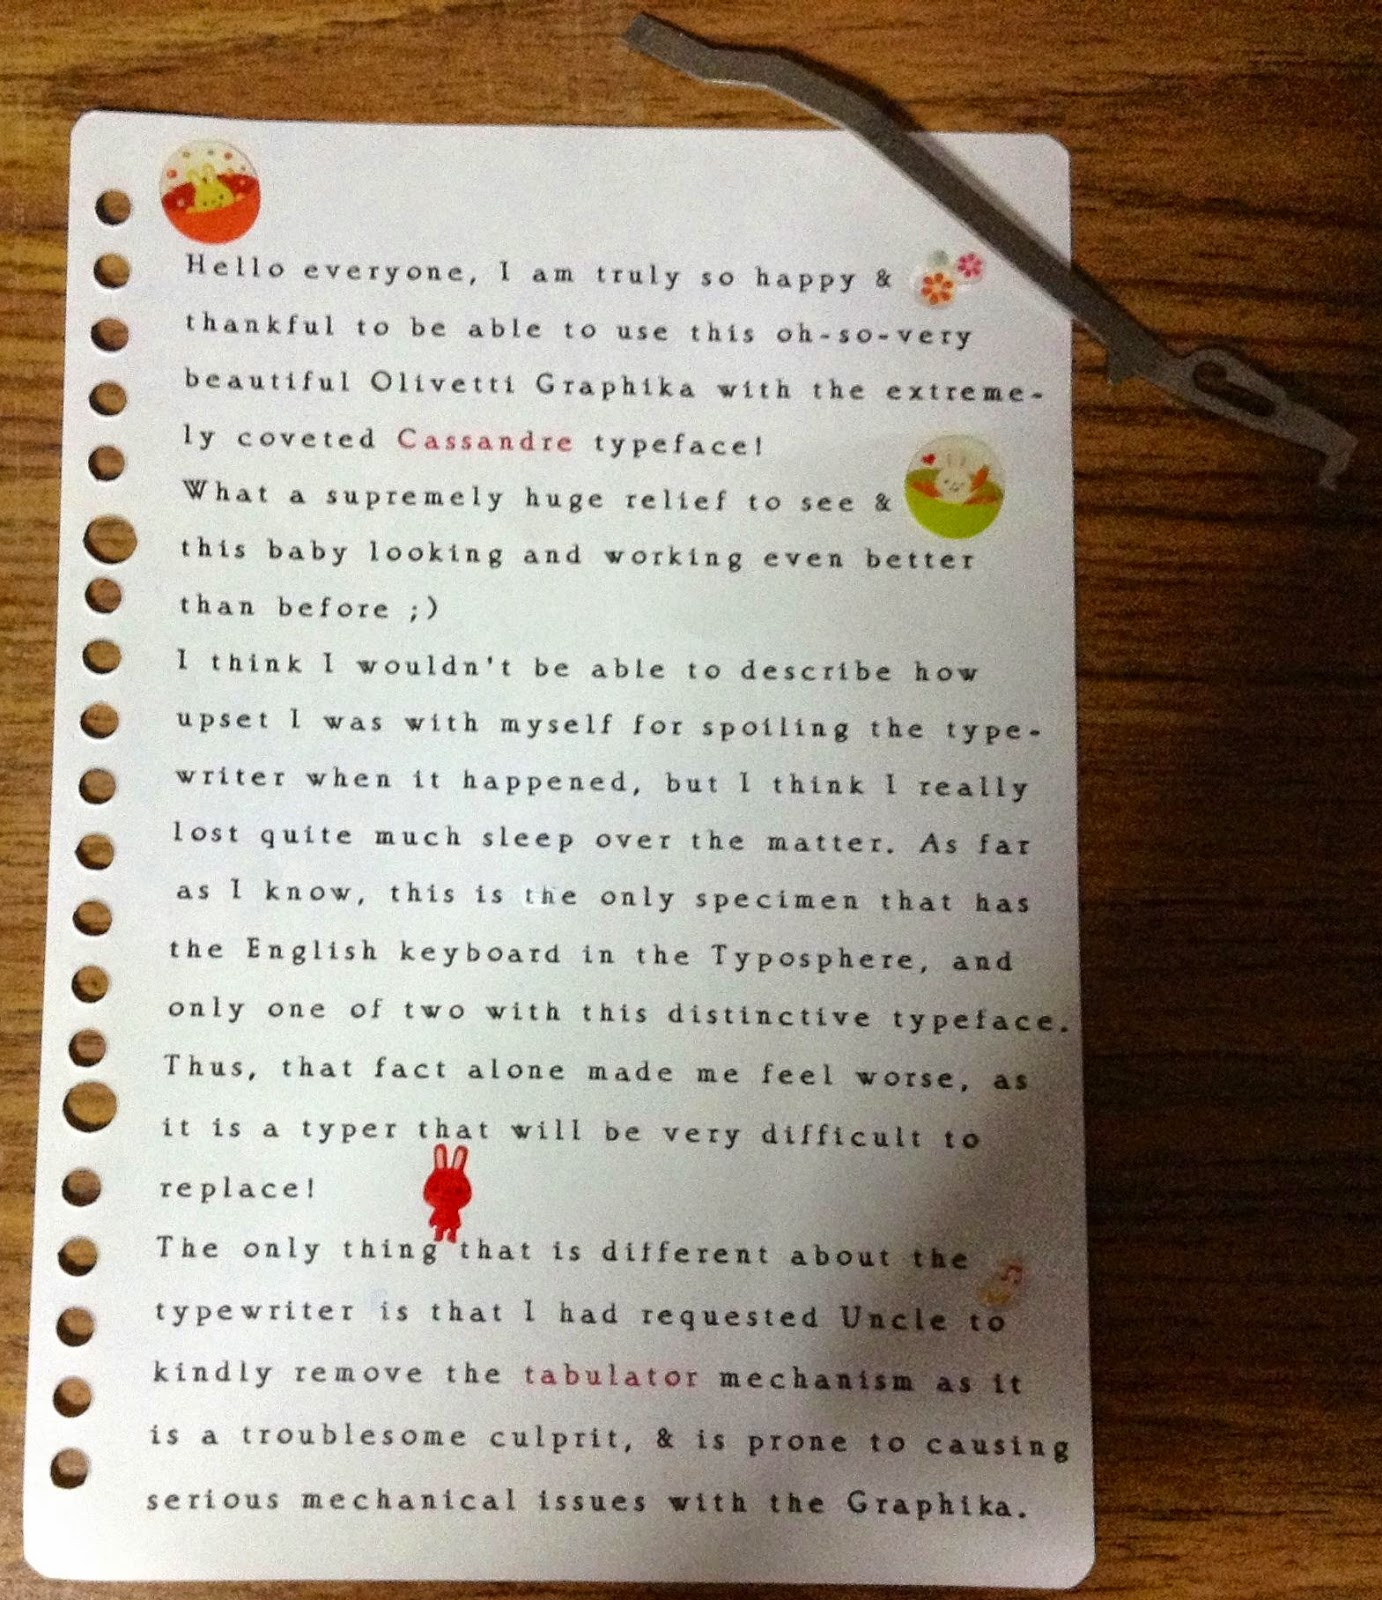 Hello everyone, I am truly so happy &
thankful to be able to use this oh-so-very
beautiful Olivetti Graphika with the extreme-
ly coveted Cassandre typeface!
What a supremely huge relief to see &
this baby looking and working even better
than before ;)
I think I wouldn't be able to describe how
upset I was with myself for spoiling the type-
writer when it happened, but I think I really
lost quite much sleep over the matter. As far
as I know, this is the only specimen that has
the English keyboard in the Typosphere, and
only one of two with this distinctive typeface.
Thus, that fact alone made me feel worse, as
it is a typer that will be very difficult to
replace!
The only thing that is different about the
typewriter is that I had requested Uncle to
kindly remove the tabulator mechanism as it
is a troublesome culprit, & is prone to causing
serious mechanical issues with the Graphika.